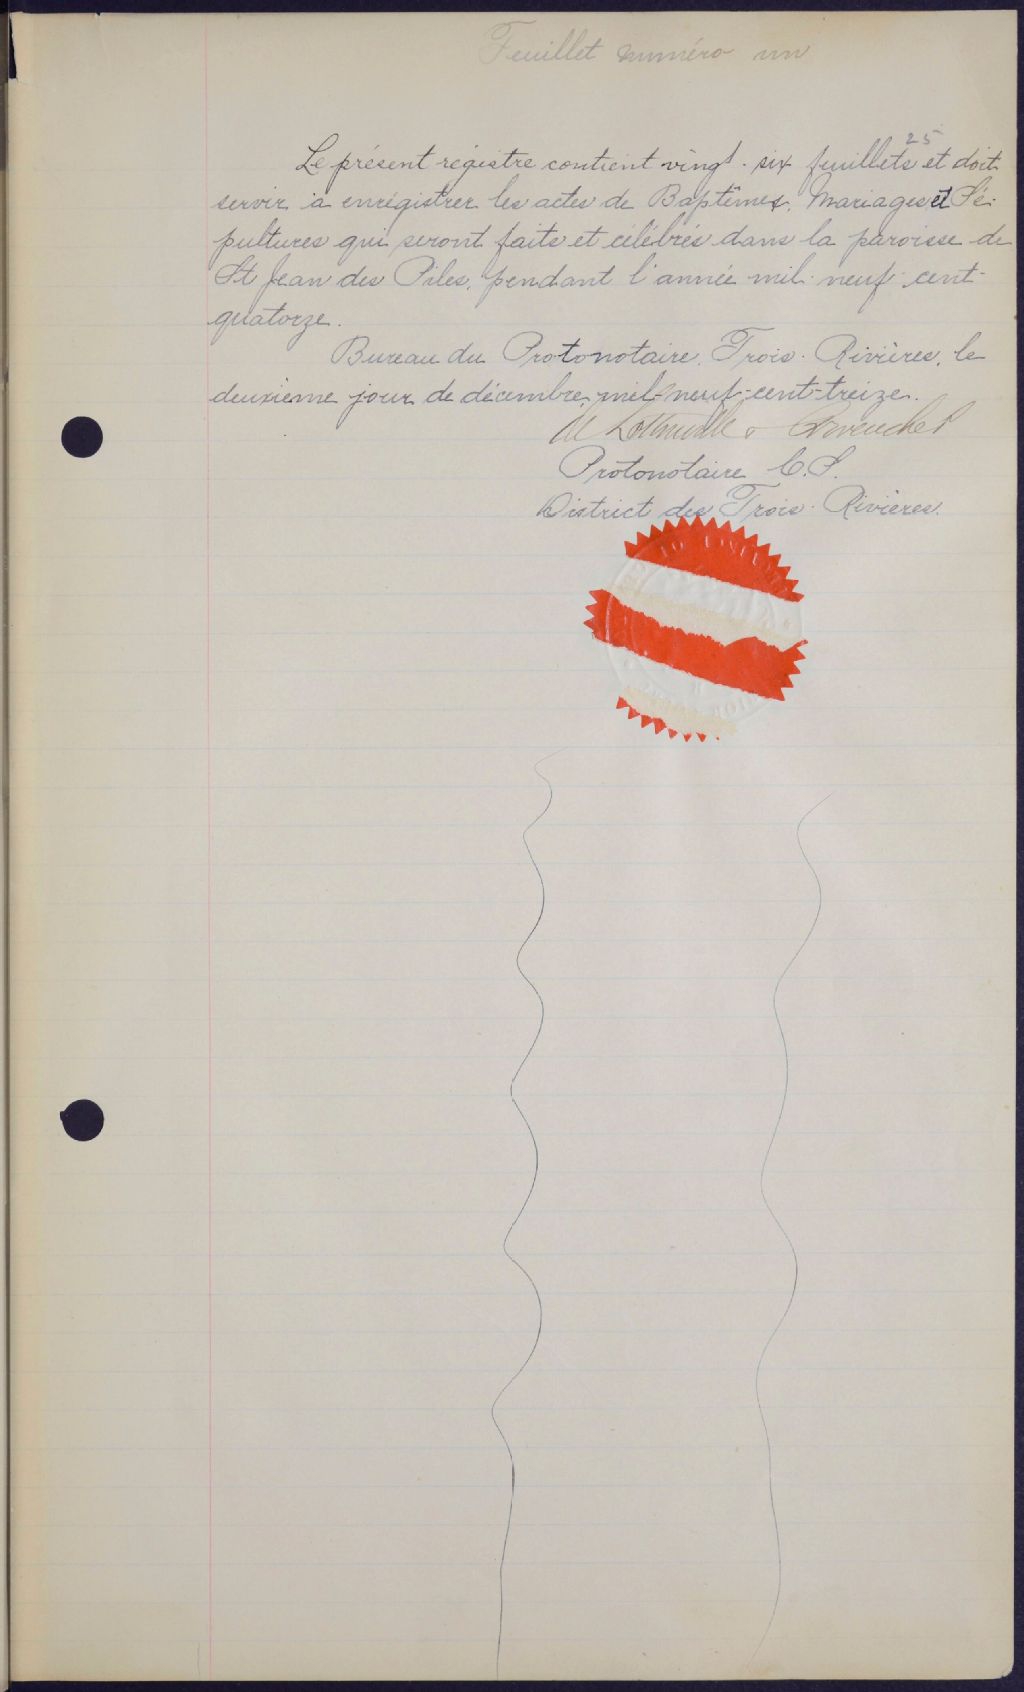 Feuillet numéro un
25
Le présent régistre contient vingt-six feuillets et doit
servir à enrégistrer les actes de Baptêmes, Mariages et Sé-
pultures qui seront faits et célébrés dans la paroisse de
St Jean des Piles, pendant l'année mil-neuf-cent-
quatorze.
Bureau du Protonotaire, Trois-Rivières, le
deuxième jour de décembre, mil-neuf-cent-treize.
Protonotaire C.S.
District des Trois-Rivières.